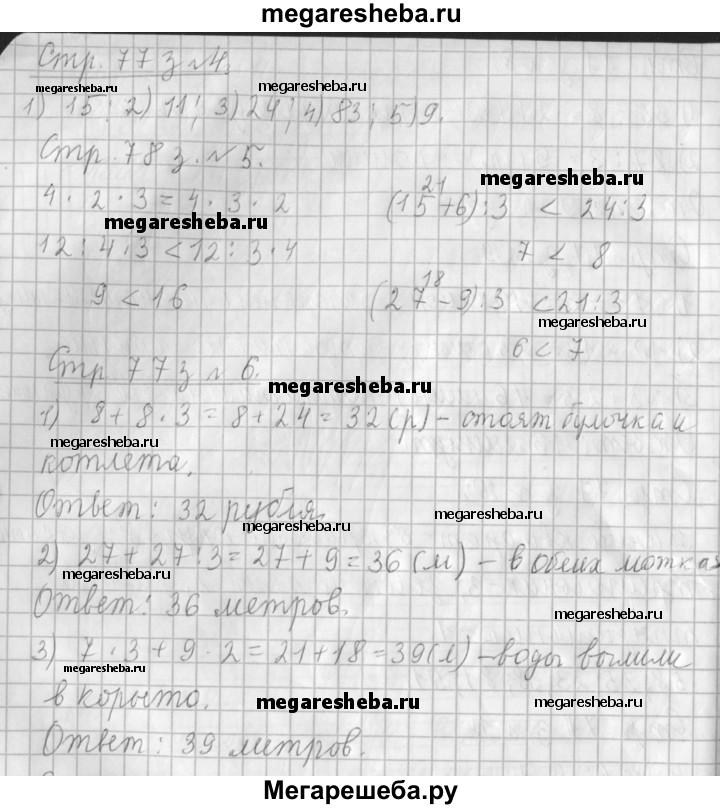 megaresheba.ru
Стр. 77 з №4.
megaresheba.ru megaresheba.ru
1) 15; 2) 11; 3) 24; 4) 83; 5) 9.
Стр. 78 з. №5.
megaresheba.ru
4 · 2 · 3 = 4 · 3 · 2
21
(15+6):3 < 24:3
megaresheba.ru
12 : 4 · 3 < 12 : 3 · 4
7 < 8
9 < 16
18
(27-9):3 < 21:3
megaresheba.ru
6 < 7
Стр 77 з № 6.
megaresheba.ru
1) 8 + 8 · 3 = 8 + 24 = 32 (р) - стоят булочка и
megaresheba.ru
котлета.
Ответ: 32 рубля.
megaresheba.ru megaresheba.ru
2) 27 + 27 : 3 = 27 + 9 = 36 (м) - в обеих мотках
megaresheba.ru
Ответ: 36 метров.
megaresheba.ru
3) 7 · 3 + 9 · 2 = 21 + 18 = 39 (л) - воды вылили
megaresheba.ru
в корыто.
megaresheba.ru megaresheba.ru
Ответ: 39 метров.
Мегарешеба.ру